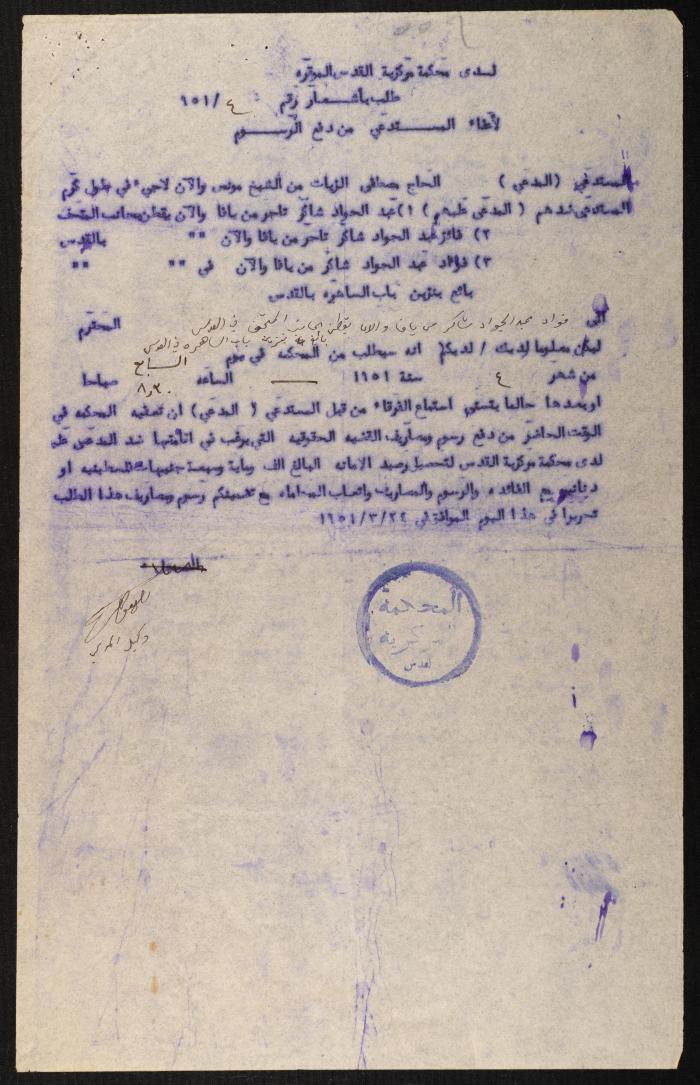 لدى محكمة مركزية القدس الموقره
طلب باشعار رقم ٤ /١٥١
لأعفاء المستدعي من دفع الرسوم
المستدعي (المدعي) الحاج مصطفى الزيات من الشيخ مونس والآن لاجيء في طول كرم
المستدعى ضدهم ( المدعى عليهم ) ١) عبد الجواد شاكر تاجر من يافا والآن يقطن بجانب المتحف
٢) فائز عبد الجواد شاكر تاجر من يافا والآن "" بالقدس
٣) فؤاد عبد الجواد شاكر من يافا والآن في "" ""
بائع بنزين باب الساهره بالقدس
الى فؤاد عبد الجواد شاكر من يافا والان يقطن بجانب المتحف في القدس المحترم
بائع بنزين باب الساهره في القدس
ليكن معلوما لديك / لديكم انه سيطلب من المحكمه في يوم السابع
من شهر ٤ سنة ١٩٥١ الساعه ٨٫٣٠ صباحا
او بعدها حالما يتسنى استماع الفرقاء من قبل المستدعي ( المدعي) ان تعفيه المحكمه في
الوقت الحاضر من دفع رسوم ومصاريف القضيه الحقوقيه التي يرغب في اقامتها ضد المدعى عليهم
لدى محكمة مركزية القدس لتحصيل رصيد الامانه البالغ الف وماية وسبعة جنيهات فلسطينيه او
دنانير مع الفائده والرسوم والمصاريف واتعاب المحاماه مع تضمينكم رسوم ومصاريف هذا الطلب
تحريرا في هذا اليوم الموافق في ١٩٥١/٣/٢٤
وكيل المدعي
المحكمة
المركزية
القدس